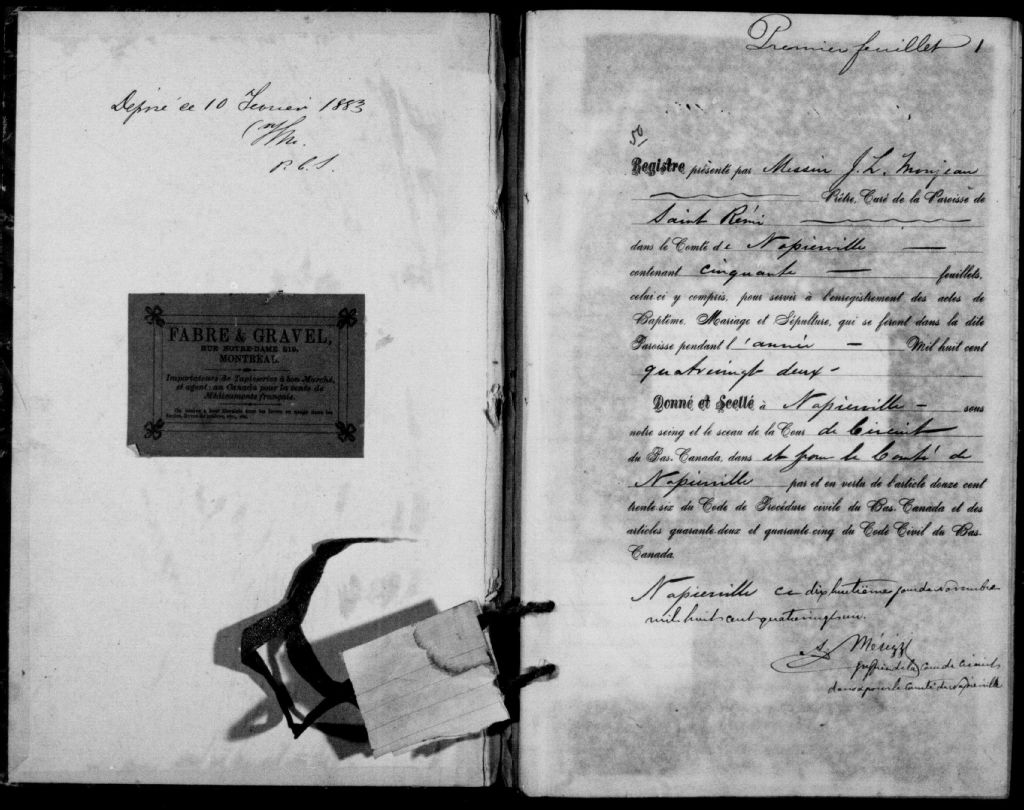 Déposé ce 10 Fevrier 1883
P.C.S.
FABRE & GRAVEL,
RUE NOTRE-DAME 219,
MONTRÉAL.
Importateurs de Tapisseries à bon Marché,
et agents au Canada pour la vente de
Médicaments français.
Premier feuillet 1
50
Registre présenté par Messire J. L. Monjeau
Prêtre, Curé de la Paroisse de
Saint Rémi
dans le Comté de Napierville
contenant cinquante feuillets,
celui-ci y compris, pour servir à l'enregistrement des actes de
Baptême, Mariage et Sépulture, qui se feront dans la dite
Paroisse pendant l'année Mil huit cent
quatrevingt deux -
Donné et Scellé à Napierville - sous
notre seing et le sceau de la Cour de Circuit
du Bas-Canada, dans et pour le Comté de
Napierville par et en vertu de l'article douze cent
trente-six du Code de Procédure civile du Bas-Canada et des
articles quarante-deux et quarante-cinq du Code Civil du Bas-
Canada.
Napierville ce dixhuitième jour de novembre
mil huit cent quatrevingt un.
greffier de la Cour de Circuit
dans & pour le Comté de Napierville